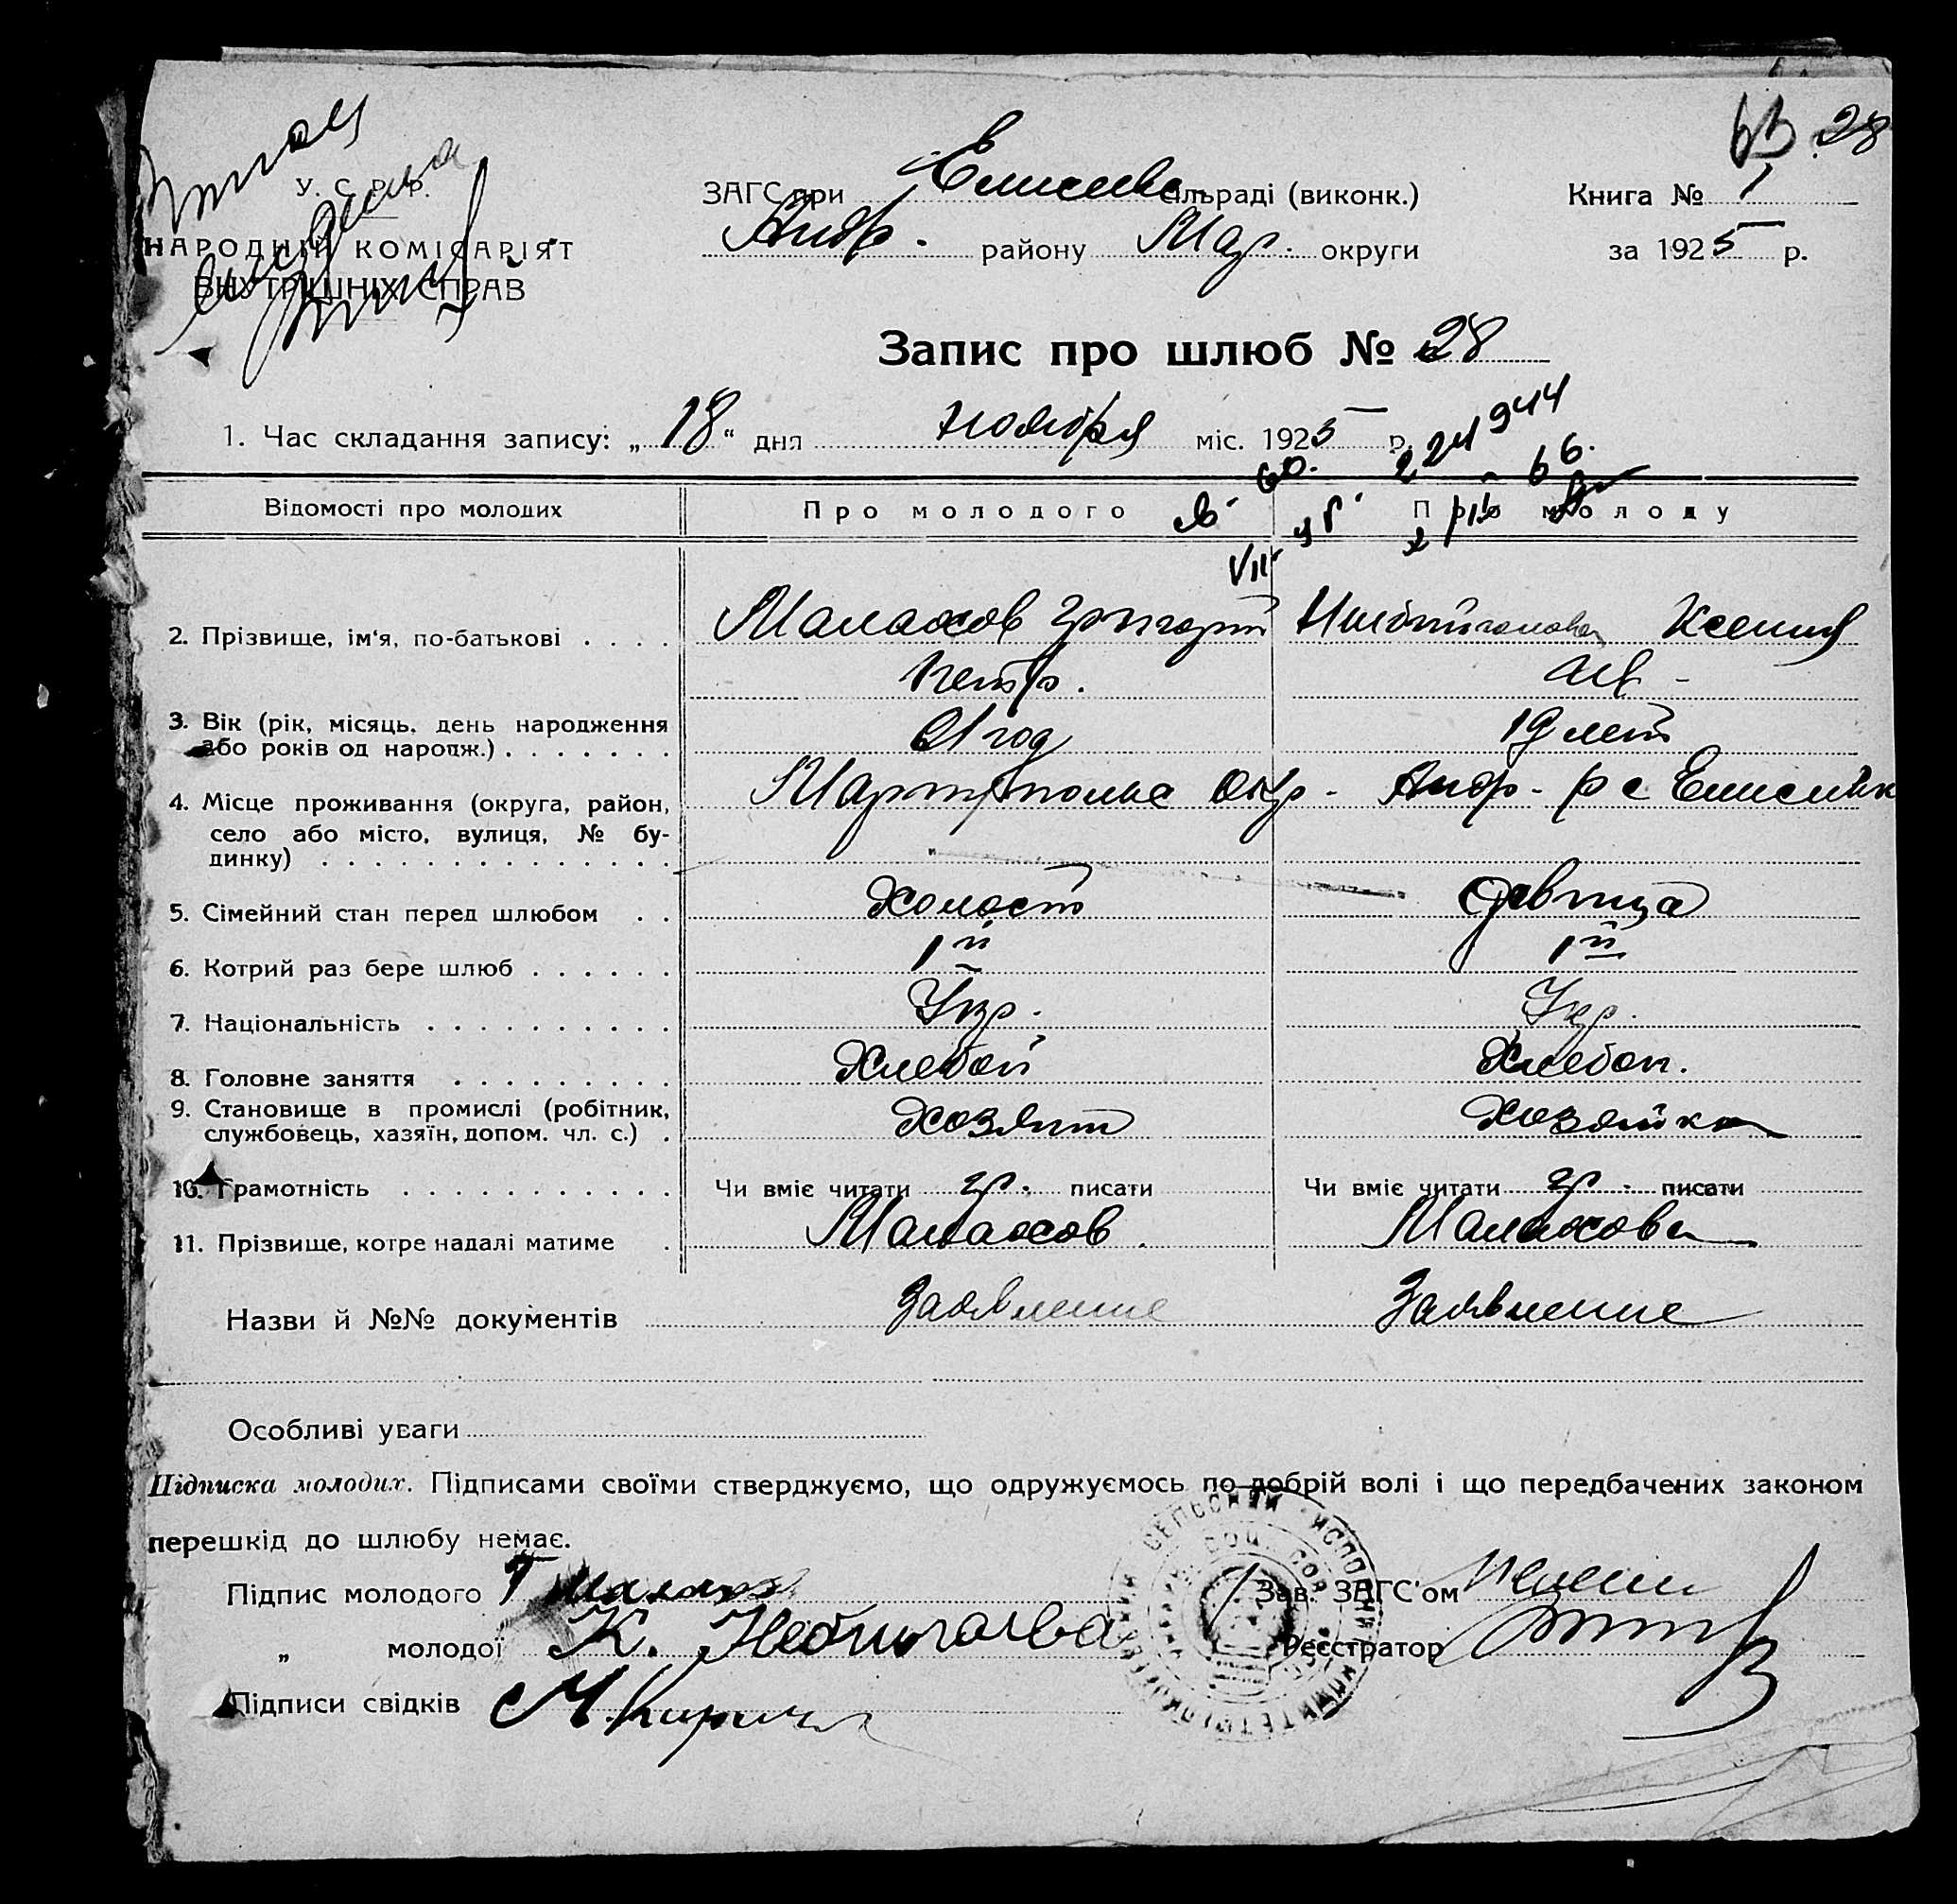 28
У. С. Р. Р.
НАРОДНІЙ КОМІСАРІЯТ
ВНУТРІШНІХ СПРАВ
ЗАГС при Елисеев. сільраді (виконк.)
Андр. району Мар. округи
Книга № 1
за 1925 р.
Запис про шлюб № 28
1. Час складання запису: „18“ дня ноября міс. 1925 р.
Відомості про молодих Про молодого Про молоду
2. Прізвище, ім'я, по-батькові . . . . Малахов Григорий Ксения
Петр. Ив -
3. Вік (рік, місяць, день народження 21 год 19 лет
або років од народж.) . . . . . . .
4. Місце проживання (округа, район, Мариупольс Окр - Андр - р с Елисейвк
село або місто, вулиця, № бу-
динку) . . . . . . . . . . . . . .
5. Сімейний стан перед шлюбом . . Холост Девица
6. Котрий раз бере шлюб . . . . . . 1й 1й
7. Національність . . . . . . . . . . Укр. Укр.
8. Головне заняття . . . . . . . . . Хлебоп Хлебоп.
9. Становище в промислі (робітник, Хозяин Хозяйка
службовець, хазяїн, допом. чл. с.) .
10. Грамотність . . . . . . . . . . . Чи вміє читати гр. писати Чи вміє читати гр. писати
11. Прізвище, котре надалі матиме . Малахов Малахова
Назви й №№ документів Заявление Заявление
Особливі уваги
Підписка молодих. Підписами своїми стверджуємо, що одружуємось по добрій волі і що передбачених законом
перешкід до шлюбу немає.
Підпис молодого Г Малах Зав. ЗАГС'ом
„ молодої К. Реєстратор
Підписи свідків